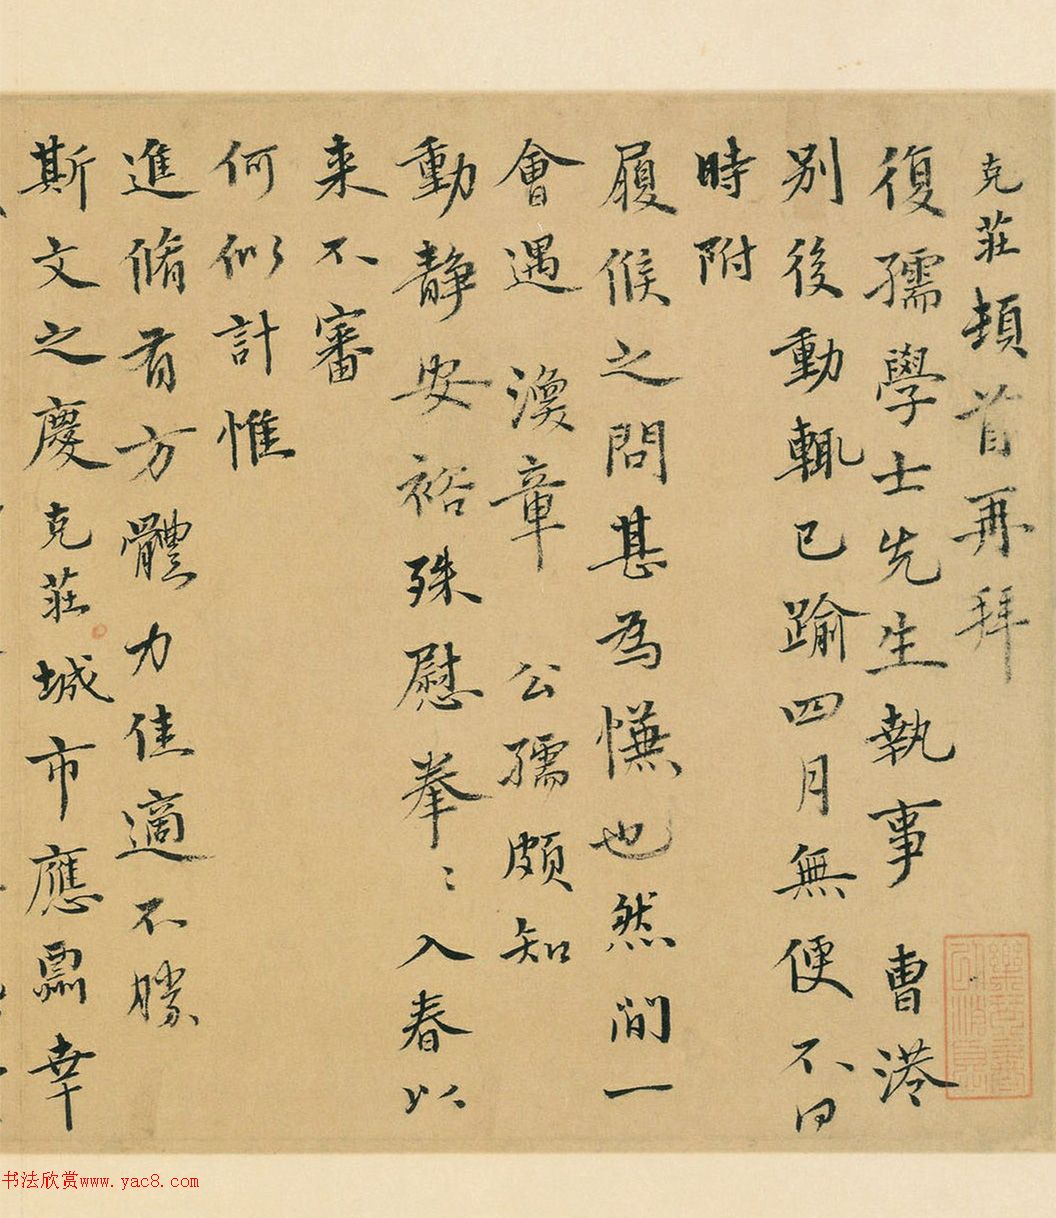 克莊頓首再拜
復孺學士先生執事 曹港
別後動輒已踰四月無便不曰
時附
履候之問甚為慊也然間一
會遇 渙章 公孺頗知
動靜安裕殊慰拳〻入春以
来不審
何似計惟
進脩有方體力佳適不勝
斯文之慶克莊城市應幸
书法欣赏www.yac8.com